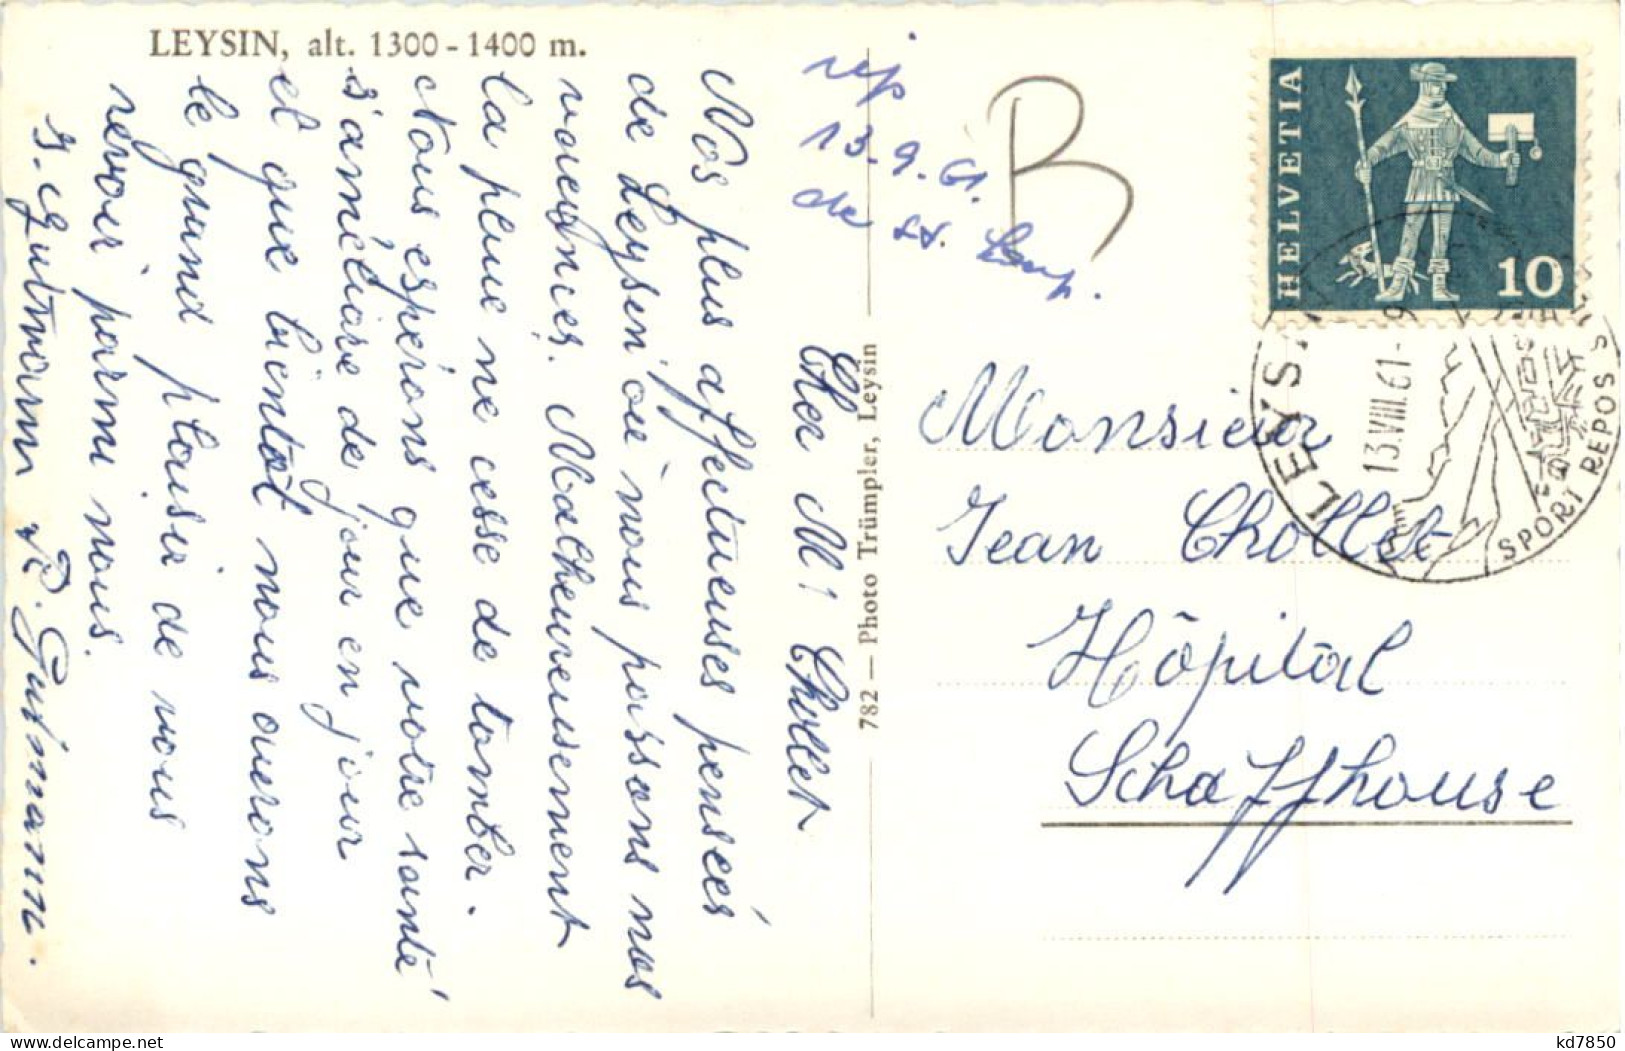 LEYSIN, alt. 1300 - 1400 m.
Cher Mr Chollet
Nos plus affectueuses pensées
de Leysin où nous passons nos
vacances. Malheureusement
la pluie ne cesse de tomber.
Nous espérons que votre santé
s'améliore de jour en jour
et que bientôt nous aurons
le grand plaisir de vous
revoir parmi nous.
Gutmann R. Gutmann.
782 — Photo Trümpler, Leysin
rép
13.9.61.
de St.
B
HELVETIA
10
LEYSIN
13.VIII.61-9
SPORT REPOS S
Monsieur
Jean Chollet
Hôpital
Schaffhouse
kd7850